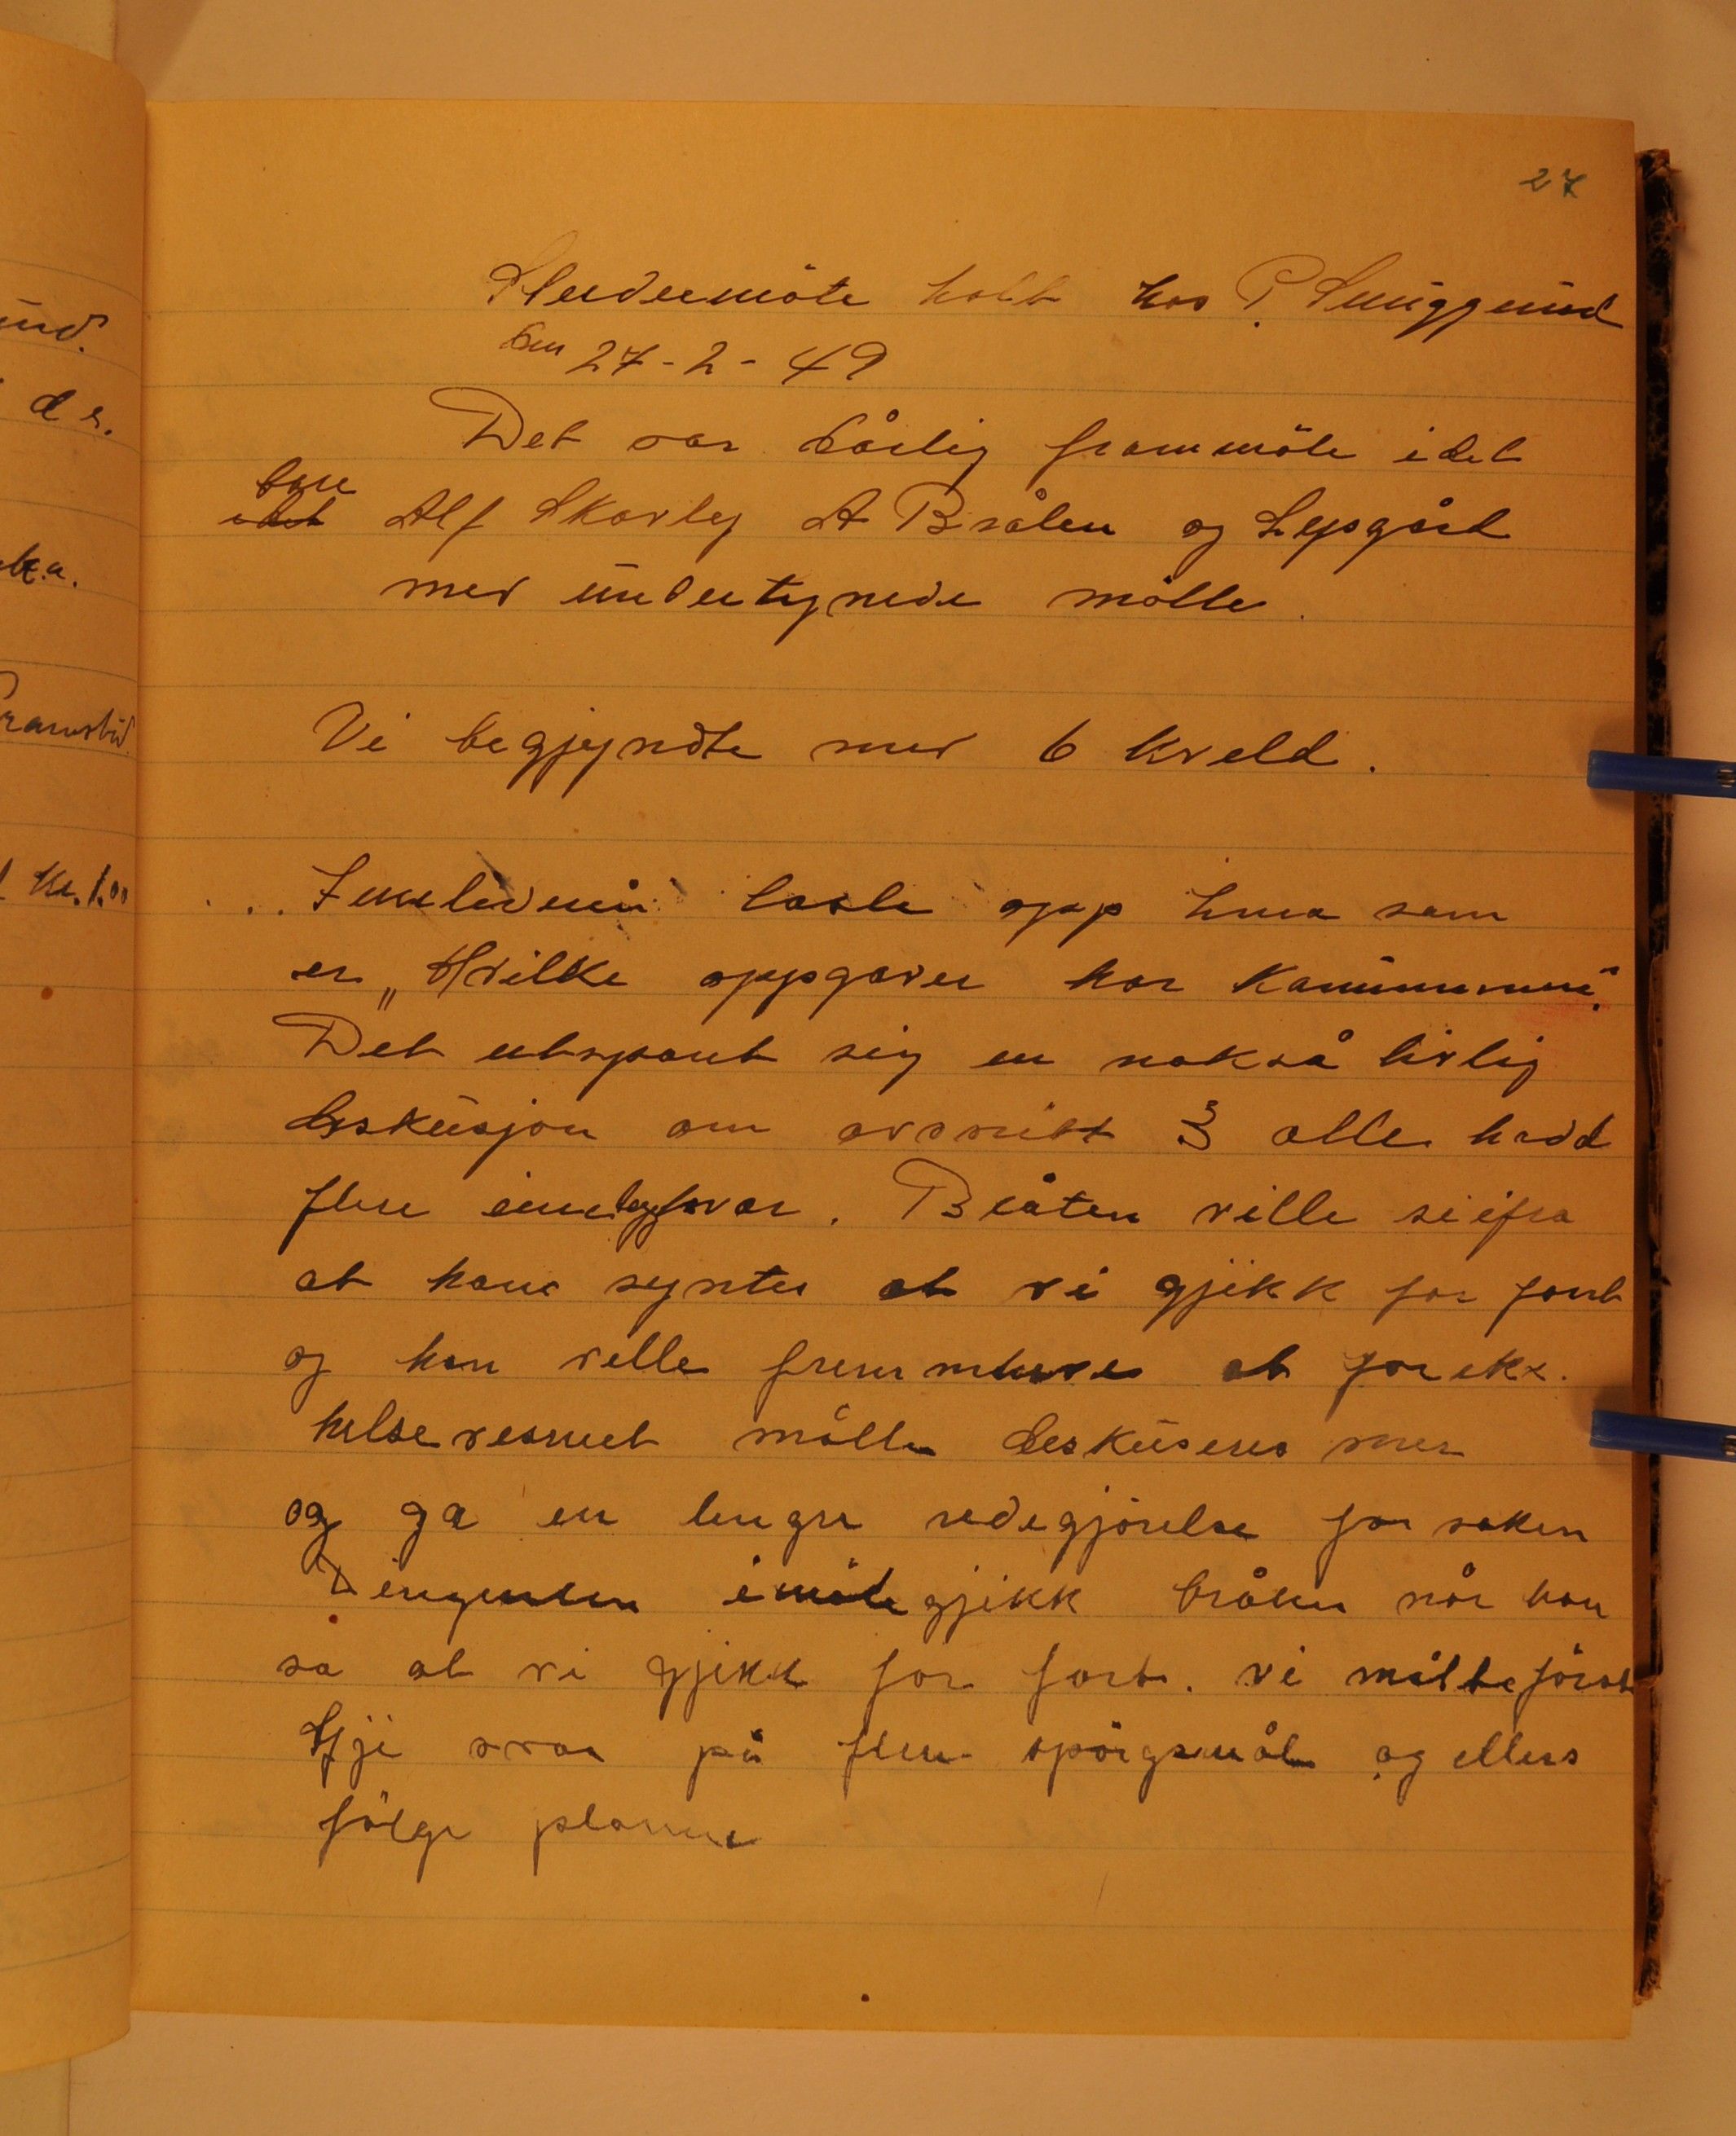 27
Studiemöte holt hos P.
den 27-2-49
Det var dårlig frammöte idet
bare
idet Alf Skarley A Bråten og Lysgård
med undertegnede mötte.
Vi begjyndte med 6 kveld.
leste opp tema som
er „Hvilke oppgaver har kommunen".
Det utspant sig en nokså livlig
diskusjon om avsnitt 3 alle hadd
flere innlegg svar. Bråten ville si ifra
at hans syntes at vi gjikk for fort
og han ville fremmheve at for eks.
helsevesenet måtte diskuseres mer
og ga en lengre redegjörelse for saken
imöte gjikk bråten når han
sa at vi gjikk for fort. vi måtte först
gji svar på flere spörgsmål og ellers
fölge planene
und.
d r.
kr. 1.00